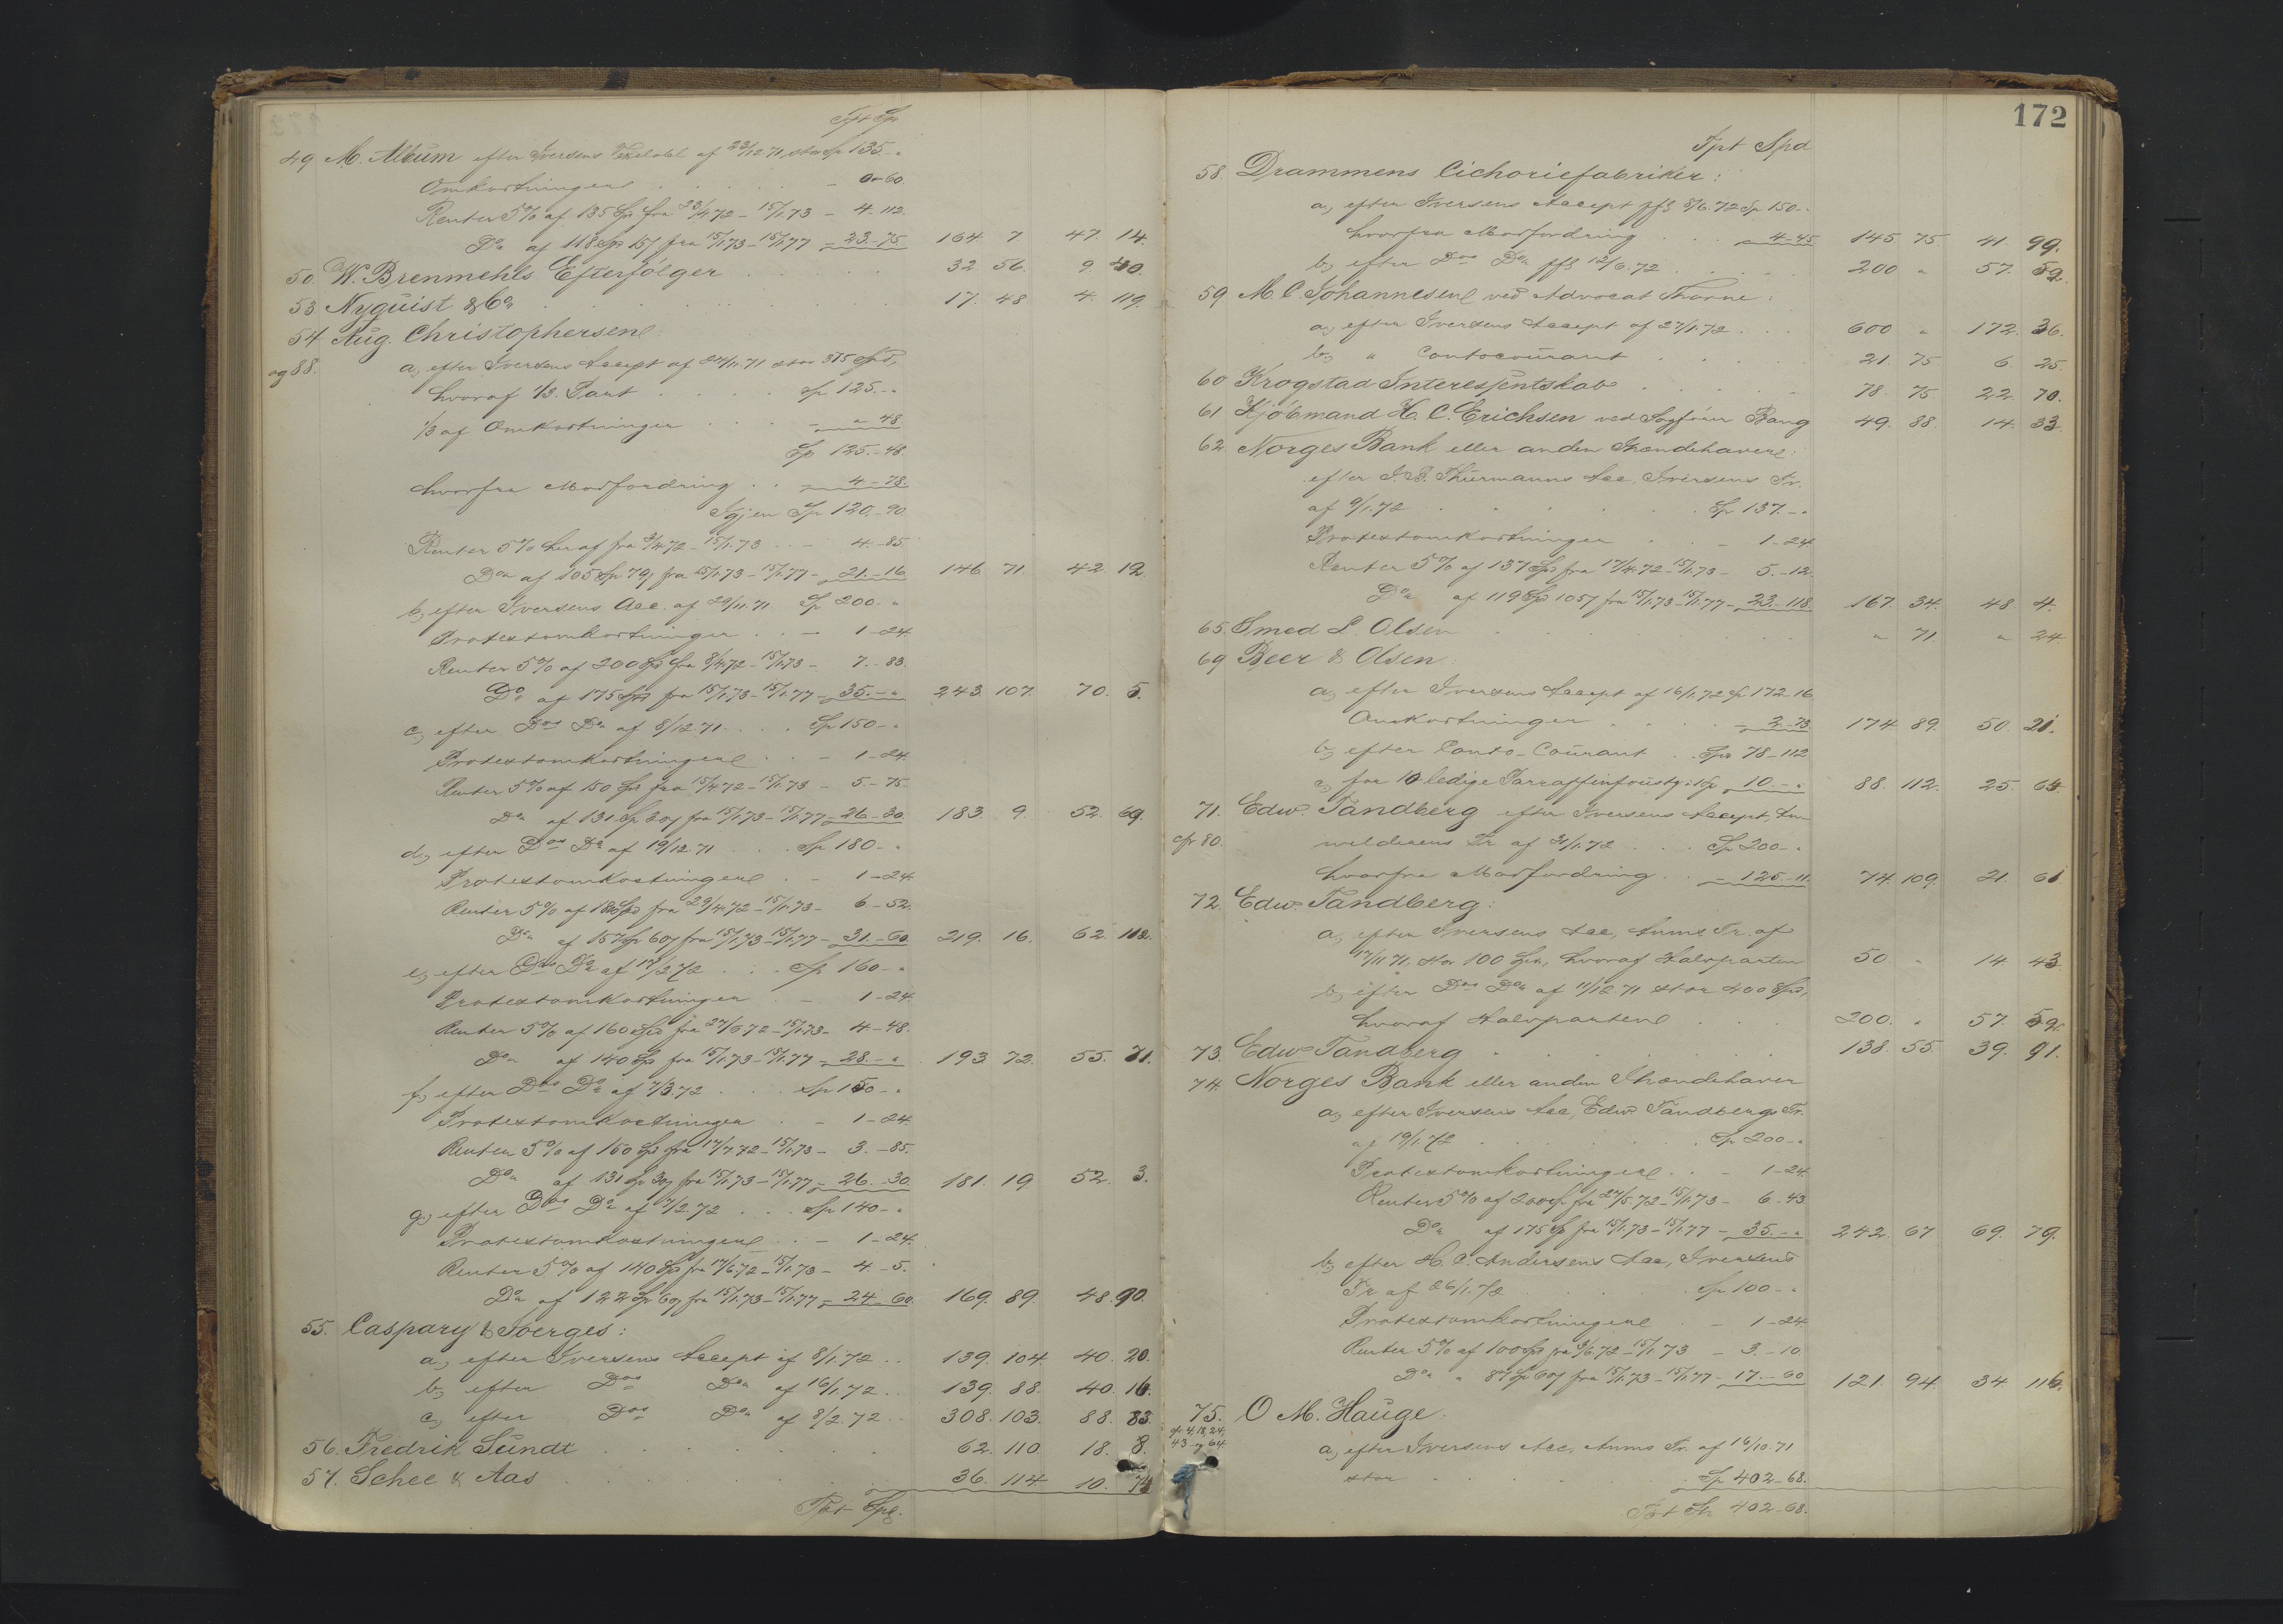 Tpt Sp
49. M. Album efter Iversens Vexelobl. af 23/12 71, stor Sp 135 - "
Omkostninger . . . . . - 0 - 60.
Renter 5% af 135 Sp fra 23/4 72 - 15/1 73 - 4 - 112.
Do af 118 Sp 15 f fra 15/1 73 - 15/1 77 - 23 - 75. 164. 7 47. 14.
50. W. Brenmehls Efterfölger . . . . 32 56. 9. 40.
53 Nyquist & Co . . . . 17. 48 4. 119.
54 Aug. Christophersen:
og 88. a, efter Iversens Accept af 24/11 71 stor 375 Spd,
hvoraf 1/3 Part . . . . Sp 125 - "
1/3 af Omkostninger . . . - " - 48
Sp 125 - 48.
hvorfra Modfordring . . - 4 - 78.
Igjen Sp 120 - 90.
Renter 5% heraf fra 3/4 72 - 15/1 73 . . - 4 - 85.
Do af 105 Sp 79 f fra 15/1 73 - 15/1 77 - 21 - 16 146 71. 42. 12
b, efter Iversens Acc. af 29/11 71 Sp 200 - "
Protestomkostninger . . - 1 - 24.
Renter 5% af 200 Spd fra 8/4 72 - 15/1 73 - 7 - 83.
Do af 175 Spd fra 15/1 73 - 15/1 77 - 35 - " 243 107. 70. 5.
c, efter Dos Do af 8/12 71 . . . . Sp 150 - "
Protestomkostninger . . - 1 - 24.
Renter 5% af 150 Spd fra 15/4 72 - 15/1 73 - 5 - 75.
Do af 131 Sp 30 f fra 15/1 73 - 15/1 77 - 26 - 30. 183. 9. 52. 69.
d, efter Dos Do af 19/12 71 . . . Sp 180 - "
Protestomkostninger . - 1 - 24.
Renter 5% af 180 Spd fra 29/4 72 - 15/1 73 - 6 - 52.
Do af 157 Sp 60 f fra 15/1 73 - 15/1 77 - 31 - 60. 219. 16. 62. 112.
e, efter Dos Do af 17/2 72 . . . Sp 160 - "
Protestomkostninger . - 1 - 24.
Renter 5% af 160 Spd fra 27/6 72 - 15/1 73 - 4 - 48.
Do af 140 Sp fra 15/1 73 - 15/1 77 - 28 - " 193. 72. 55. 71.
f, efter Dos Do af 7/3 72 . . . Sp 150 - "
Protestomkostninger . - 1 - 24.
Renter 5% af 150 Sp fra 17/7 72 - 15/1 73 - 3 - 85.
Do af 131 Sp 30 f fra 15/1 73 - 15/1 77 - 26 - 30 181. 19 52. 3.
g, efter Dos Do af 7/2 72 . . . Sp 140 - "
Protestomkostninger . . - 1 - 24.
Renter 5% af 140 Sp fra 17/6 72 - 15/1 73 - 4 - 5.
Do af 122 Sp 60 f fra 15/1 73 - 15/1 77 - 24 - 60. 169. 89. 48. 90.
55. Caspary & Soerges:
a, efter Iversens Accept af 8/1 72 . . 139. 104. 40. 20.
b, efter Dos Do af 16/1 72 . . 139. 88. 40. 16.
c, efter Dos Do af 8/2 72 . . 308. 103. 88. 83.
56. Fredrik Sundt . . . . 62. 110. 18. 8.
57. Schee & Aas . . . . 36. 114 10. 74
Tpt Spd.
172
Tpt Spd
58. Drammens Cichoriefabriker:
a, efter Iversens Accept pf 8/6 72 Sp 150 - "
hvorfra Modfordring . . - 4 - 45 145. 75. 41. 99.
b, efter Dos Do pf 12/6 72 . . . . 200 " 57. 59.
59. M. C. Johannesen ved Advocat Thorne:
a, efter Iversens Accept af 27/1 72 . . . 600 " 172. 36.
b, " Contocourant . . . . 21 75. 6 25.
60. Krogstad Interessentskab . . . . 78 75. 22. 70.
61. Kjöbmand H. C. Erichsen ved Sagförer Bang 49. 88. 14. 33.
62. Norges Bank eller anden Ihændehaver:
efter J. B. Thurmanns Acc., Iversens Tr.
af 9/1 72 . . . . Sp 137 - "
Protestomkostninger . . - 1 - 24.
Renter 5% af 137 Spd fra 17/4 72 - 15/1 73 - 5 - 12.
Do af 119 Spd 105 f fra 15/1 73 - 15/1 77 - 23 - 118. 167. 34. 48. 4.
65. Smed L. Olsen . . . . " 71. " 24.
69. Beer & Olsen:
a, efter Iversens Accept af 16/1 72 Sp 172 - 16
Omkostninger . . . - 2 - 73. 174. 89. 50. 21.
b, efter Conto-Courant . . Spd 78 - 112
c, for 10 ledige Parraffinfoustg: 1 Sp - 10 - " 88. 112. 25. 65.
71. Edw. Tandberg efter Iversens Accept,
cfr 80. Tr. af 31/1 72 . . . Sp 200 - "
hvorfra Modfordring . . - 125 - 11. 74. 109. 21. 61
72. Edw. Tandberg:
a, efter Iversens Acc., Anms Tr. af
17/11 71, stor 100 Spd, hvoraf Halvparten 50 " 14. 43.
b, efter Dos Do af 11/12 71 stor 400 Spd,
hvoraf Halvparten . . . 200. " 57. 59.
73. Edw. Tandberg . . . . 138. 55. 39. 91.
74. Norges Bank eller anden Ihændehaver
a, efter Iversens Acc., Edw. Tandbergs Tr.
af 19/1 72 . . . . Sp 200 - "
Protestomkostninger . . - 1 - 24.
Renter 5% af 200 Sp fra 27/5 72 - 15/1 73 - 6 - 43
Do af 175 Sp fra 15/1 73 - 15/1 77 - 35 - " 242. 67 69. 79.
b, efter H. C. Andersens Acc., Iversens
Tr. af 26/1 72 . . . . Sp 100 - "
Protestomkostninger . - 1 - 24
Renter 5% af 100 Spd fra 3/6 72 - 15/1 73 - 3 - 10
Do " 87 Sp 60 f fra 15/1 73 - 15/1 77 - 17 - 60 121. 94. 34. 116.
75. O. M. Hauge:
cfr 4, 18, 24,
43 og 64. a, efter Iversens Acc., Anms Tr. af 16/10 71
stor . . . . Sp 402 - 68.
Tpt Sp 402 - 68.